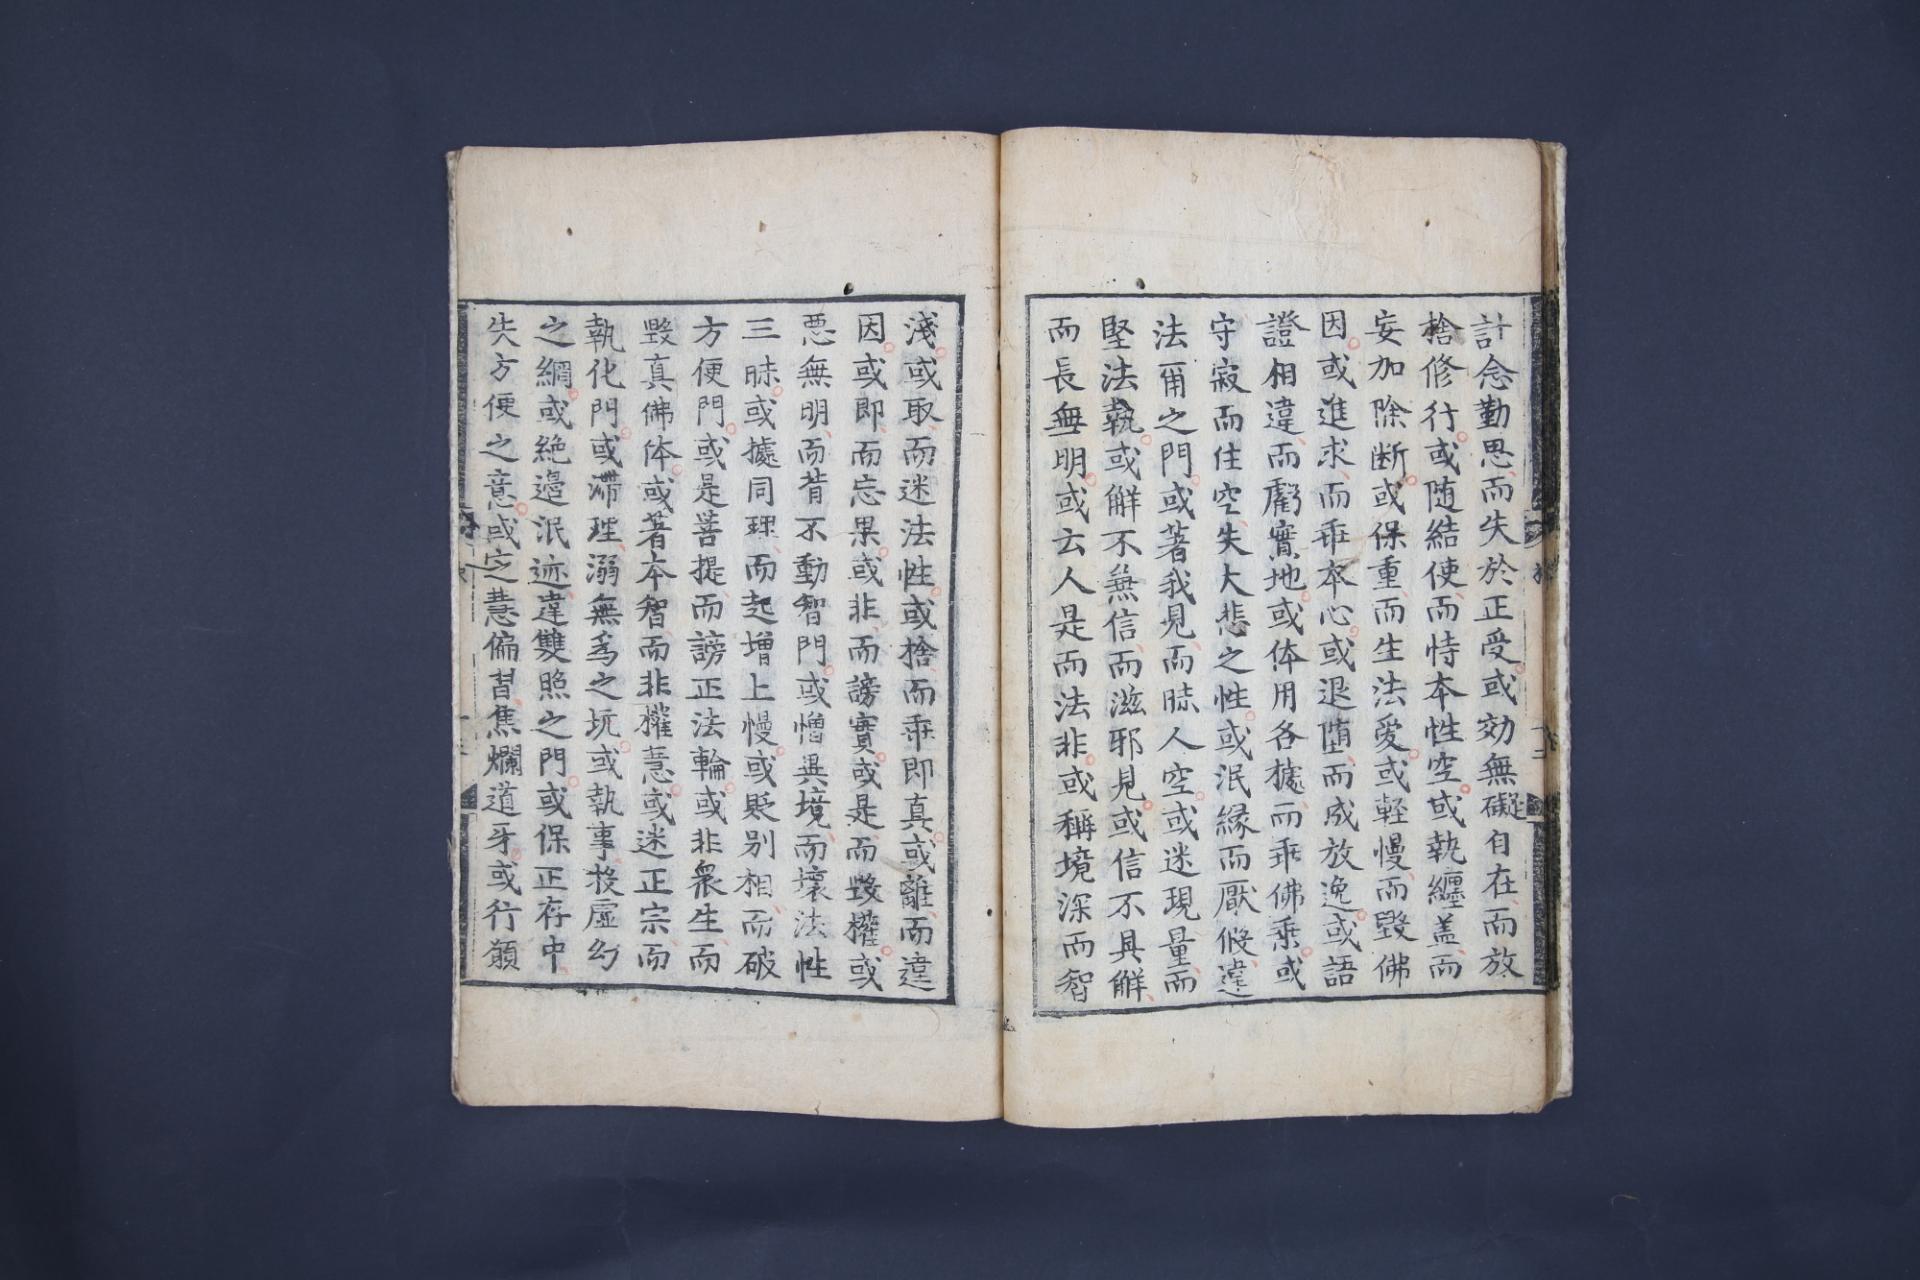 計念勤思而失於正受或効無礙自在而放
捨修行或随結使而恃本性空或執纏盖而
妄加除断或保重而生法愛或軽慢而毀佛
因或進求而乖夲心或退墮而成放逸或語
證相違而虧實地或体用各據而乖佛乗或
守寂而住空失大悲之性或泯縁而厭假違
法甭之門或著我見而昧人空或迷現量而
堅法執或解不兼信而滋邪見或信不具解
而長無明或云人是而法非或稱境深而智
淺或取而迷法性或捨而乖即真或離而違
因或即而忘果或非而謗實或是而毀權或
惡無明而背不動智門或憎異境而壞法性
三昧或據同理而起增上慢或貶别相而破
方便門或是菩提而謗正法輪或非衆生而
毀真佛体或著夲智而非權慧或迷正宗而
執化門或滯理溺無為之坑或執事投虚幻
之網或絶邉泯迹違雙照之門或保正存中
失方便之意或定慧偏習焦爛道牙或行願